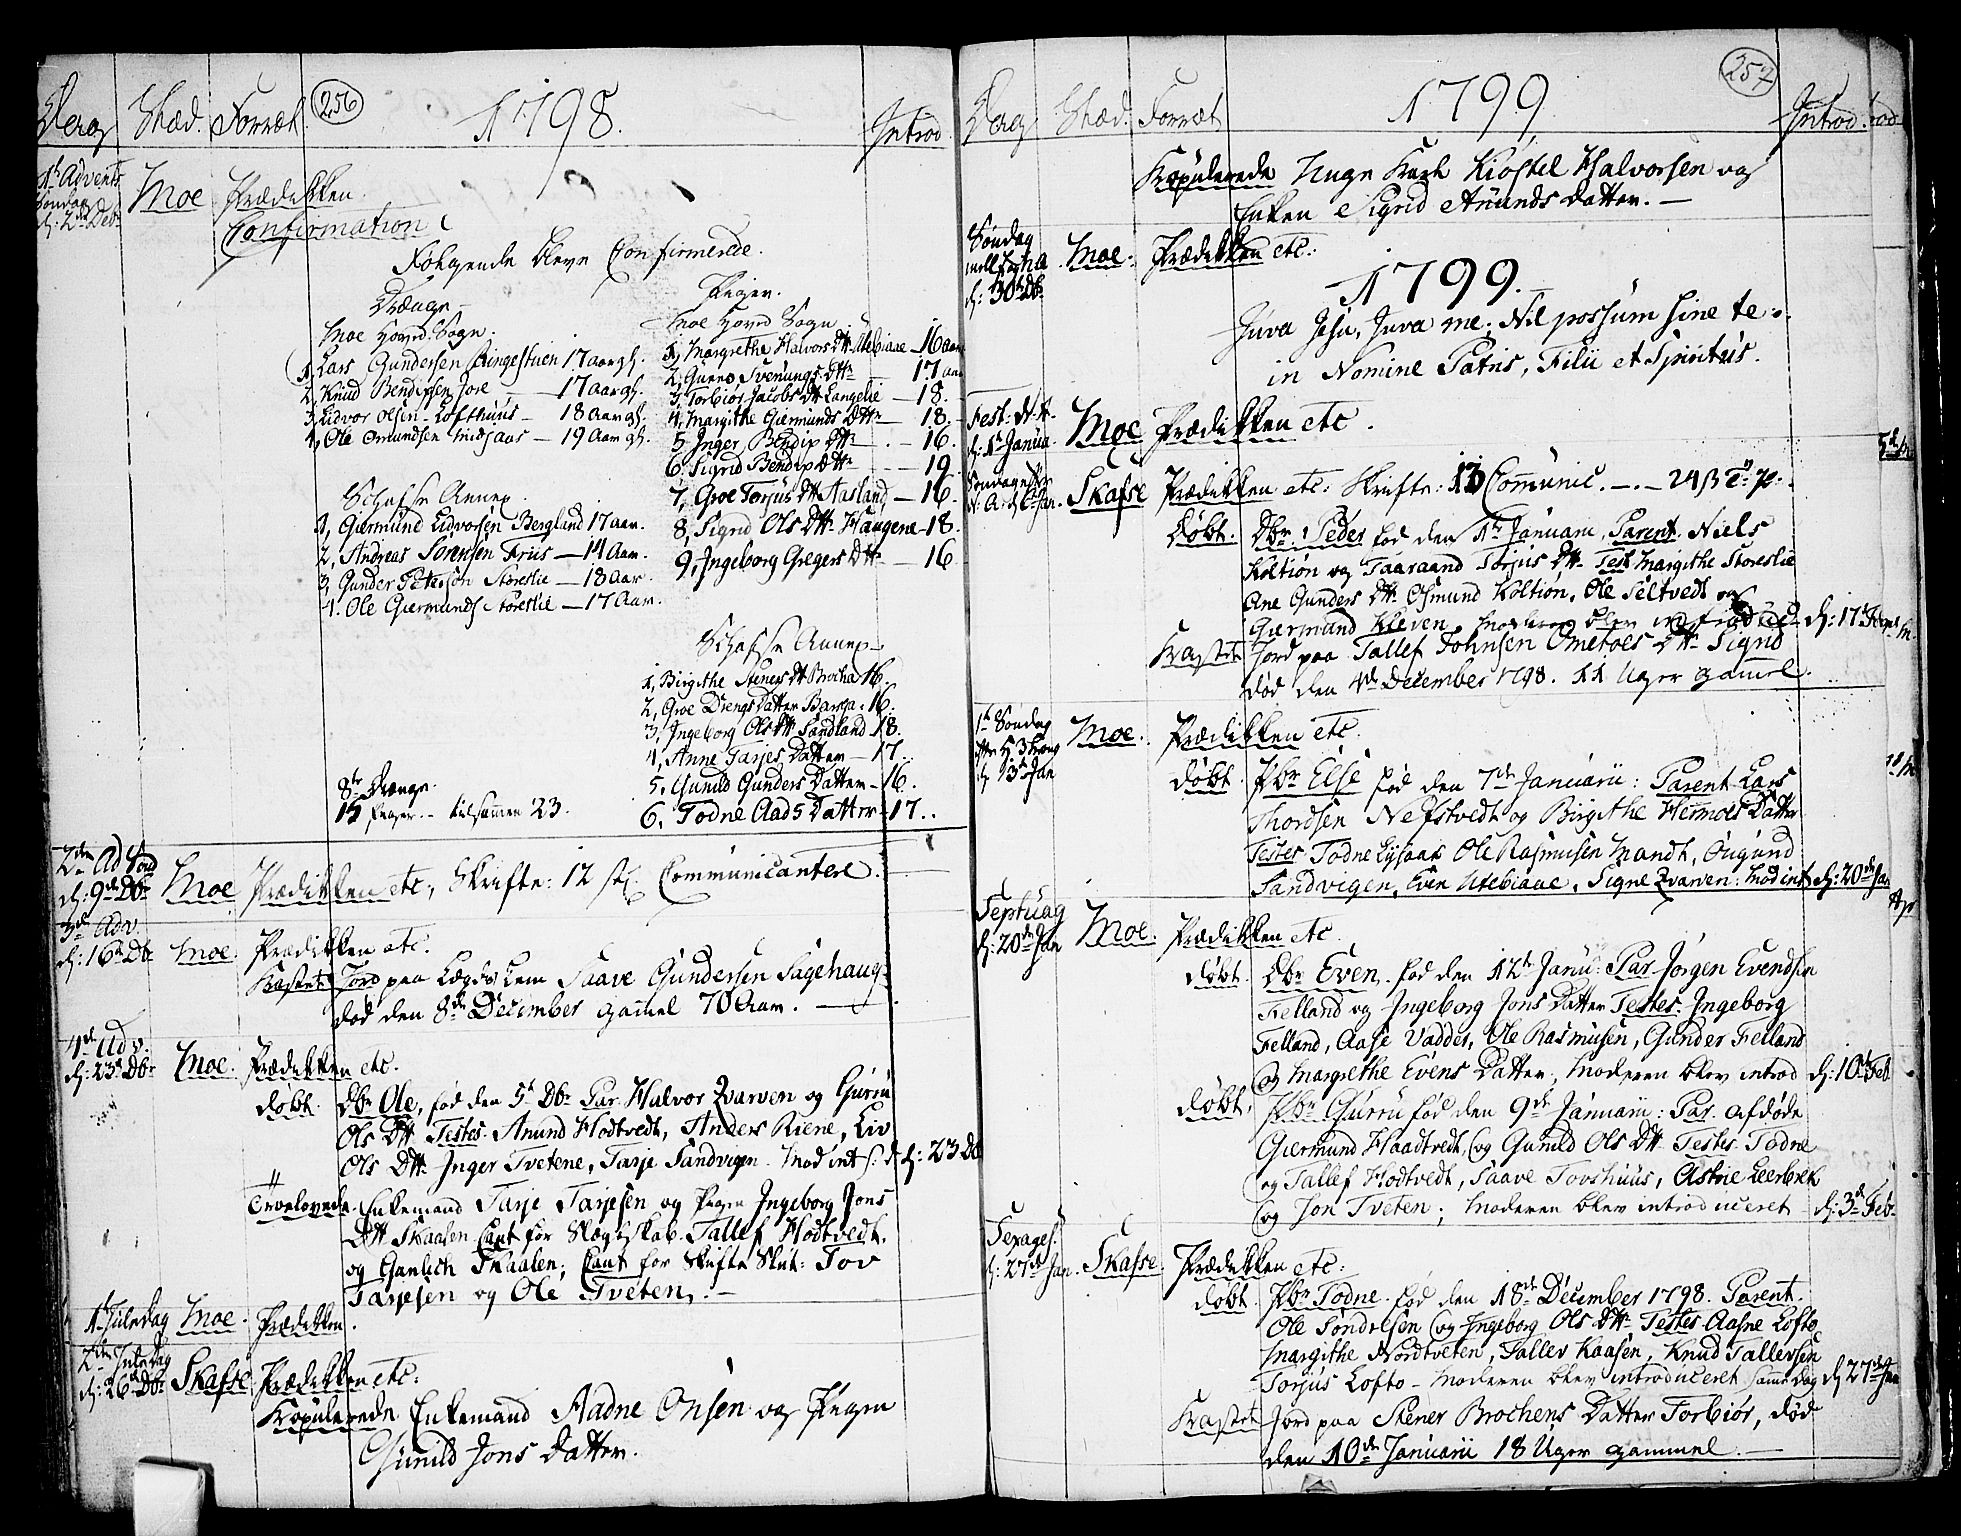 256
Dag Stæd. Forræt 1798. Introd
1st Advents Søndag d: 2den Debr Moe Prædikken
Confirmation
Følgende bleve Confirmerede.
Drænge
Moe Hoved Sogn.
1, Lars Gundersen Ringestuen 17 aar gl.
2, Knud Bendixsen Jore 17 aar gl.
3, Lidvor Olsen Lofthuus - 18 aar gl.
4, Ole Omundsen Midjaas - 19 Aar gl.
Schafse Annex
1, Giermund Lidvorsen Bergland 17 aar.
2, Andreas Sørensen Friis - 14 Aar.
3, Gunder Petersøn Storeslie - 18 aar.
4. Ole Giermunds Storeslie - 17 Aar.
8te Drænge
15 Piger - tilsammen 23.
Piger.
Moe Hoved Sogn
1, Margrethe Halvors Dtt Utebiaae - 16 aar
2, Gunno Svenungs Dttr 17 aar
3, Torbiør Jacobs Dtt Langelie - 18.
4, Margithe Giermunds Dttr - 18.
5 Inger Bendix Dttr - 16.
6, Sigrid Bendix Dttr - 19
7, Groe Torjus Dtt Aasland, - 16.
8, Sigrid Ols Dttr Haugene - 18.
9, Ingeborg Gregers Dttr - 16
Schafse Annex
1, Birgithe Steners Dtt Brocha 16.
2, Groe Drengs Datter Barga. 16.
3, Ingeborg Ols Dtt Sandland 18.
4, Anne Tarjes Datter - 17.
5. Gunild Gunders Datter - 16.
6, Todne Aads Datter - 17..
2den Ad Sønd d: 9de Dbr Moe Prædikken etc, Skrifte: 12 st. Communicantere.
3de Adv. d: 16de Dbr Moe. Prædikken etc.
Kastet Jord paa Lægds Lem Saave Gundersen Sagehaug
død den 8de December gamel 70 Aar.
4de Adv. d: 23de Dbr Moe. Prædikken etc.
døbt. Dbr. Ole, fød den 5te Dbr Par. Halvor Zvarven og Gurru
Ols Dtt. Testes. Anund Hodtvedt, Anders Riene, Liv
Ols Dtt. Inger Tvetene, Tarje Sandvigen. Mod int d: 23 Db
Trvelovede. Enkemand Tarje Tarjesen og Pigen Ingeborg Jons
Dtt Skaalen Caut for Slægtskab. Tallef Hodtvedt,
og Gunlech Skaalen; Caut for Skifte Slut: Tov
Tarjesen og Ole Tveten.
1st Juledag Moe. Prædikken.
2den Juledag d: 26de Dbr Skafse Prædikken etc:
Kopulerede Enkemand Aadne Onsen og Pigen
Gunild Jons Datter.
257
Dag Stæd. Forræt 1799 Introd.
Kopulerede Unge Karl Kiøstel Halvorsen og
Enken Sigrid Anunds Datter.
Søndag mell d: 30te Dbr Moe. Prædikken etc:
1799.
Juva Jesu, Juva me; Nil possum sine te.
in Nomine Patris, Filii et Spiritus.
Fest: N. A. d: 1ste Janua Moe Prædikken etc.
Søndag efter N: A. d: 6te Jan. Skafse Prædikken etc: Skrifte: 13 Comunic.
Døbt. Dbr. Peder fød den 1ste Januarii, Parent. Niels
Koltion og Taaraand Torjus Dtt. Test Margithe Storeslie
Ane Gunders Dtt. Osmund Koltion, Ole Seltvedt og
Giermund Kleven. Moderen blev introduced d: 17de Febr
Kastet Jord paa Tallef Johnsen Ometoes Dtt. Sigrid
død den 4de December 1798. 11 Uger gamel.
1ste Søndag efter H 3 Kong d 13de Jan Moe. Prædikken etc.
døbt. Pbr Else fød den 7de Januarii: Parent Lars
Thordsen Nefstvedt og Birgithe Hermoes Datter
Testes: Todne Lysaas Ole Rasmusen Mandt, Ougund
Sandvigen, Even Utebiaae, Signe Zvarven: Mod int d: 20de Jan
Septuag d: 20de Jan Moe. Prædikken etc
døbt. Dbr Even. fød den 12te Janu: Par. Jørgen Evendsen
Felland og Ingeborg Jons Datter Testes. Ingeborg
Felland, Aase Vadder, Ole Rasmusen, Gunder Felland
og Margrethe Evens Datter, Moderen blev introd d: 10de Feb
døbt. Pbr Gurru fød den 9de Januarii: Par. afdøde
Giermund Haadtvedt, og Gunild Ols Dtt. Testes. Todne
og Tallef Hodtvedt, Saave Tovshuus, Astrie Leerbrek
og Jon Tveten; Moderen blev introduceret d: 3de Feb.
Sexages. d: 27de Jan. Skafse. Prædikken etc:
døbt. Pbr Todne. fød den 18de December 1798. Parent.
Ole Sondresen og Ingeborg Ols Dtt. Testes. Aasne Lofto
Margithe Nordtveten, Tallev Kaasen, Knud Tallevsen
Torjus Lofto - Moderen blev introduceret samme dag d 27de Jan
Kastet Jord paa Stener Brochens Datter Torbiør, død
den 10de Januarii 18 Uger gammel.